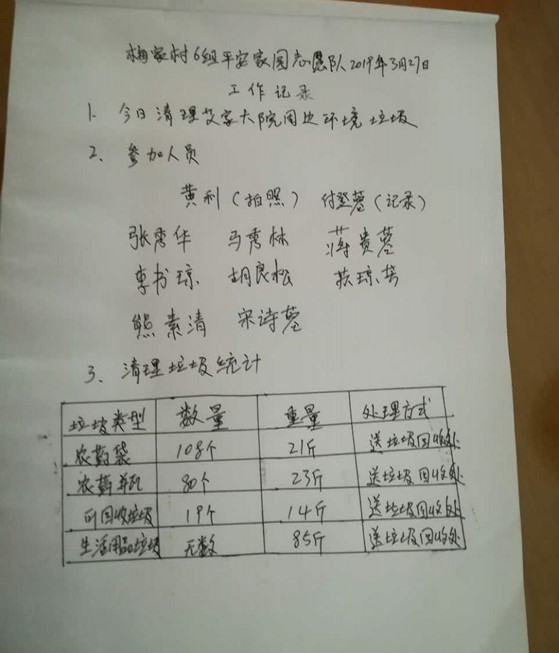 梅家村6组平安家园志愿队2019年3月27日
工作记录
1、今日清理艾家大院周边环境垃圾
2、参加人员
黄利(拍照) 付登蓉(记录)
张秀华 马秀林 蒋贵蓉
李书琼 胡良松 扶琼芳
熊素清 宋诗蓉
3、清理垃圾统计
垃圾类型 数量 重量 处理方式
农药袋 108个 21斤 送垃圾回收处
农药瓶 80个 23斤 送垃圾回收处
可回收垃圾 19个 14斤 送垃圾回收处
生活用品垃圾 无数 85斤 送垃圾回收处